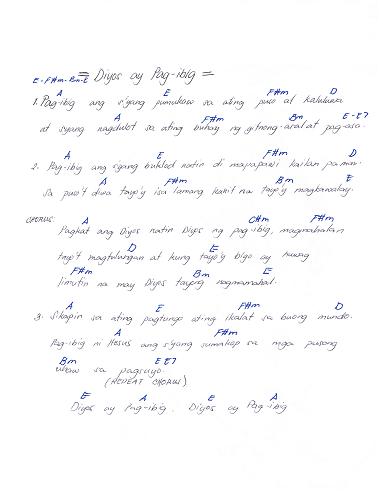 E-F#m-Bm-E = Diyos ay Pag-ibig =
A E F#m D
1. Pag-ibig ang s'yang pumukaw sa ating puso at kaluluwa
A F#m Bm E-E7
at siyang nagdulot sa ating buhay ng gitnong-aral at pag-asa.
A E F#m D
2. Pag-ibig ang syang buklod natin di mapapawi kailan pa man
A F#m Bm E
sa puso't diwa tayo'y isa lamang kahit na tayo'y magkawalay.
CHORUS: A C#m F#m
Pagkat ang Diyos natin Diyos ng pag-ibig, magmahalan
D E
tayo't magtulungan at kung tayo'y bigo ay huwag
F#m Bm E
limutin na may Diyos tayong nagmamahal.
A E F#m D
3. Sikapin sa ating pagtungo ating ikalat sa buong mundo.
A F#m
Pag-ibig ni Hesus ang s'yang sumakop sa mga pusong
Bm E E7
uhaw sa pagsuyo.
(REPEAT CHORUS)
E A E A
Diyos ay Pag-ibig. Diyos ay Pag-ibig